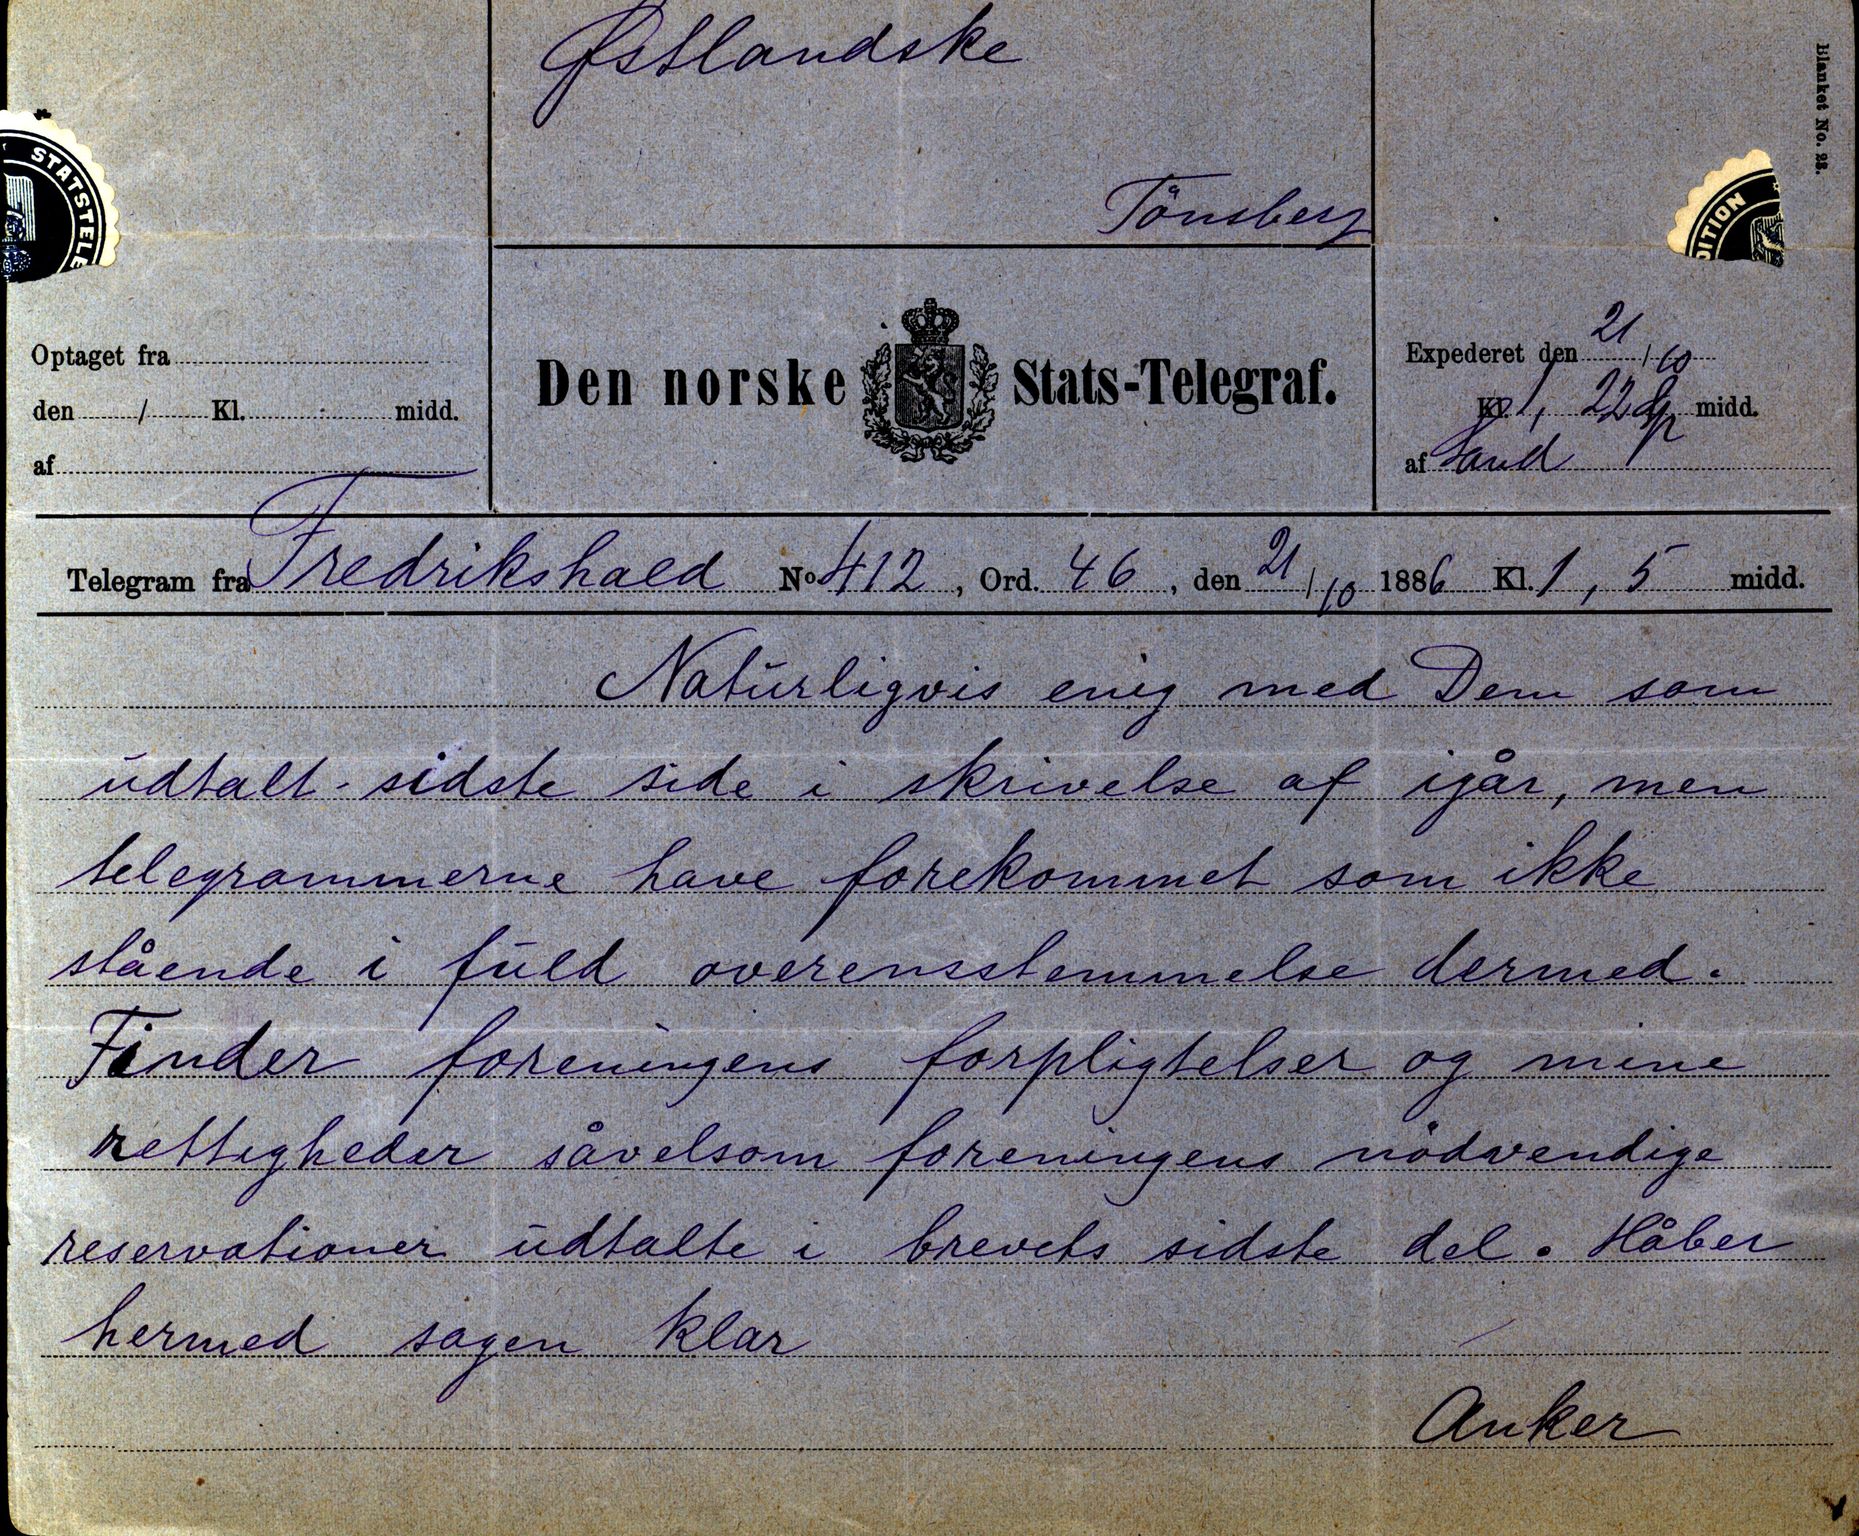 Østlandske
Tönsberg
Blanket No. 23.
STATSTELE
DITION
Optaget fra
den / Kl. midd.
af
Den norske Stats-Telegraf.
Expederet den 21/10
Kl. 1, 22 midd.
af Sand
Telegram fra Fredrikshald No 412, Ord. 46, den 21/10 1886 Kl. 1, 5 midd.
Naturligvis enig med Dem som
udtalt sidste side i skrivelse af igår, men
telegrammerne have forekommet som ikke
stående i fuld overensstemmelse dermed.
Finder foreningens forpligtelser og mine
rettigheder såvelsom foreningens nödvendige
reservationer udtalte i brevets sidste del. Håber
hermed sagen klar
Anker